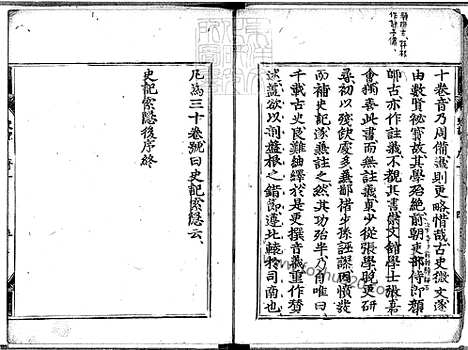 十卷音乃周備義則更略惜哉古史微文遂
由數賢秘寶故其學殆絕前朝吏部侍郎顏
師古亦作註義不覩其書崇文舘學士張嘉
會獨善此書而無註義貞少從張學晚更研
尋初以殘飲處多兼鄙褚少孫誣謬因憤發
而補史記遂兼註之然其功殆半乃自唯曰
千載古史良難紬繹於是更撰音義重作贊
述蓋欲以剖盤根之錯節遵北轅於司南也
凡為三十卷號曰史記索隱云
史記索隱後序終